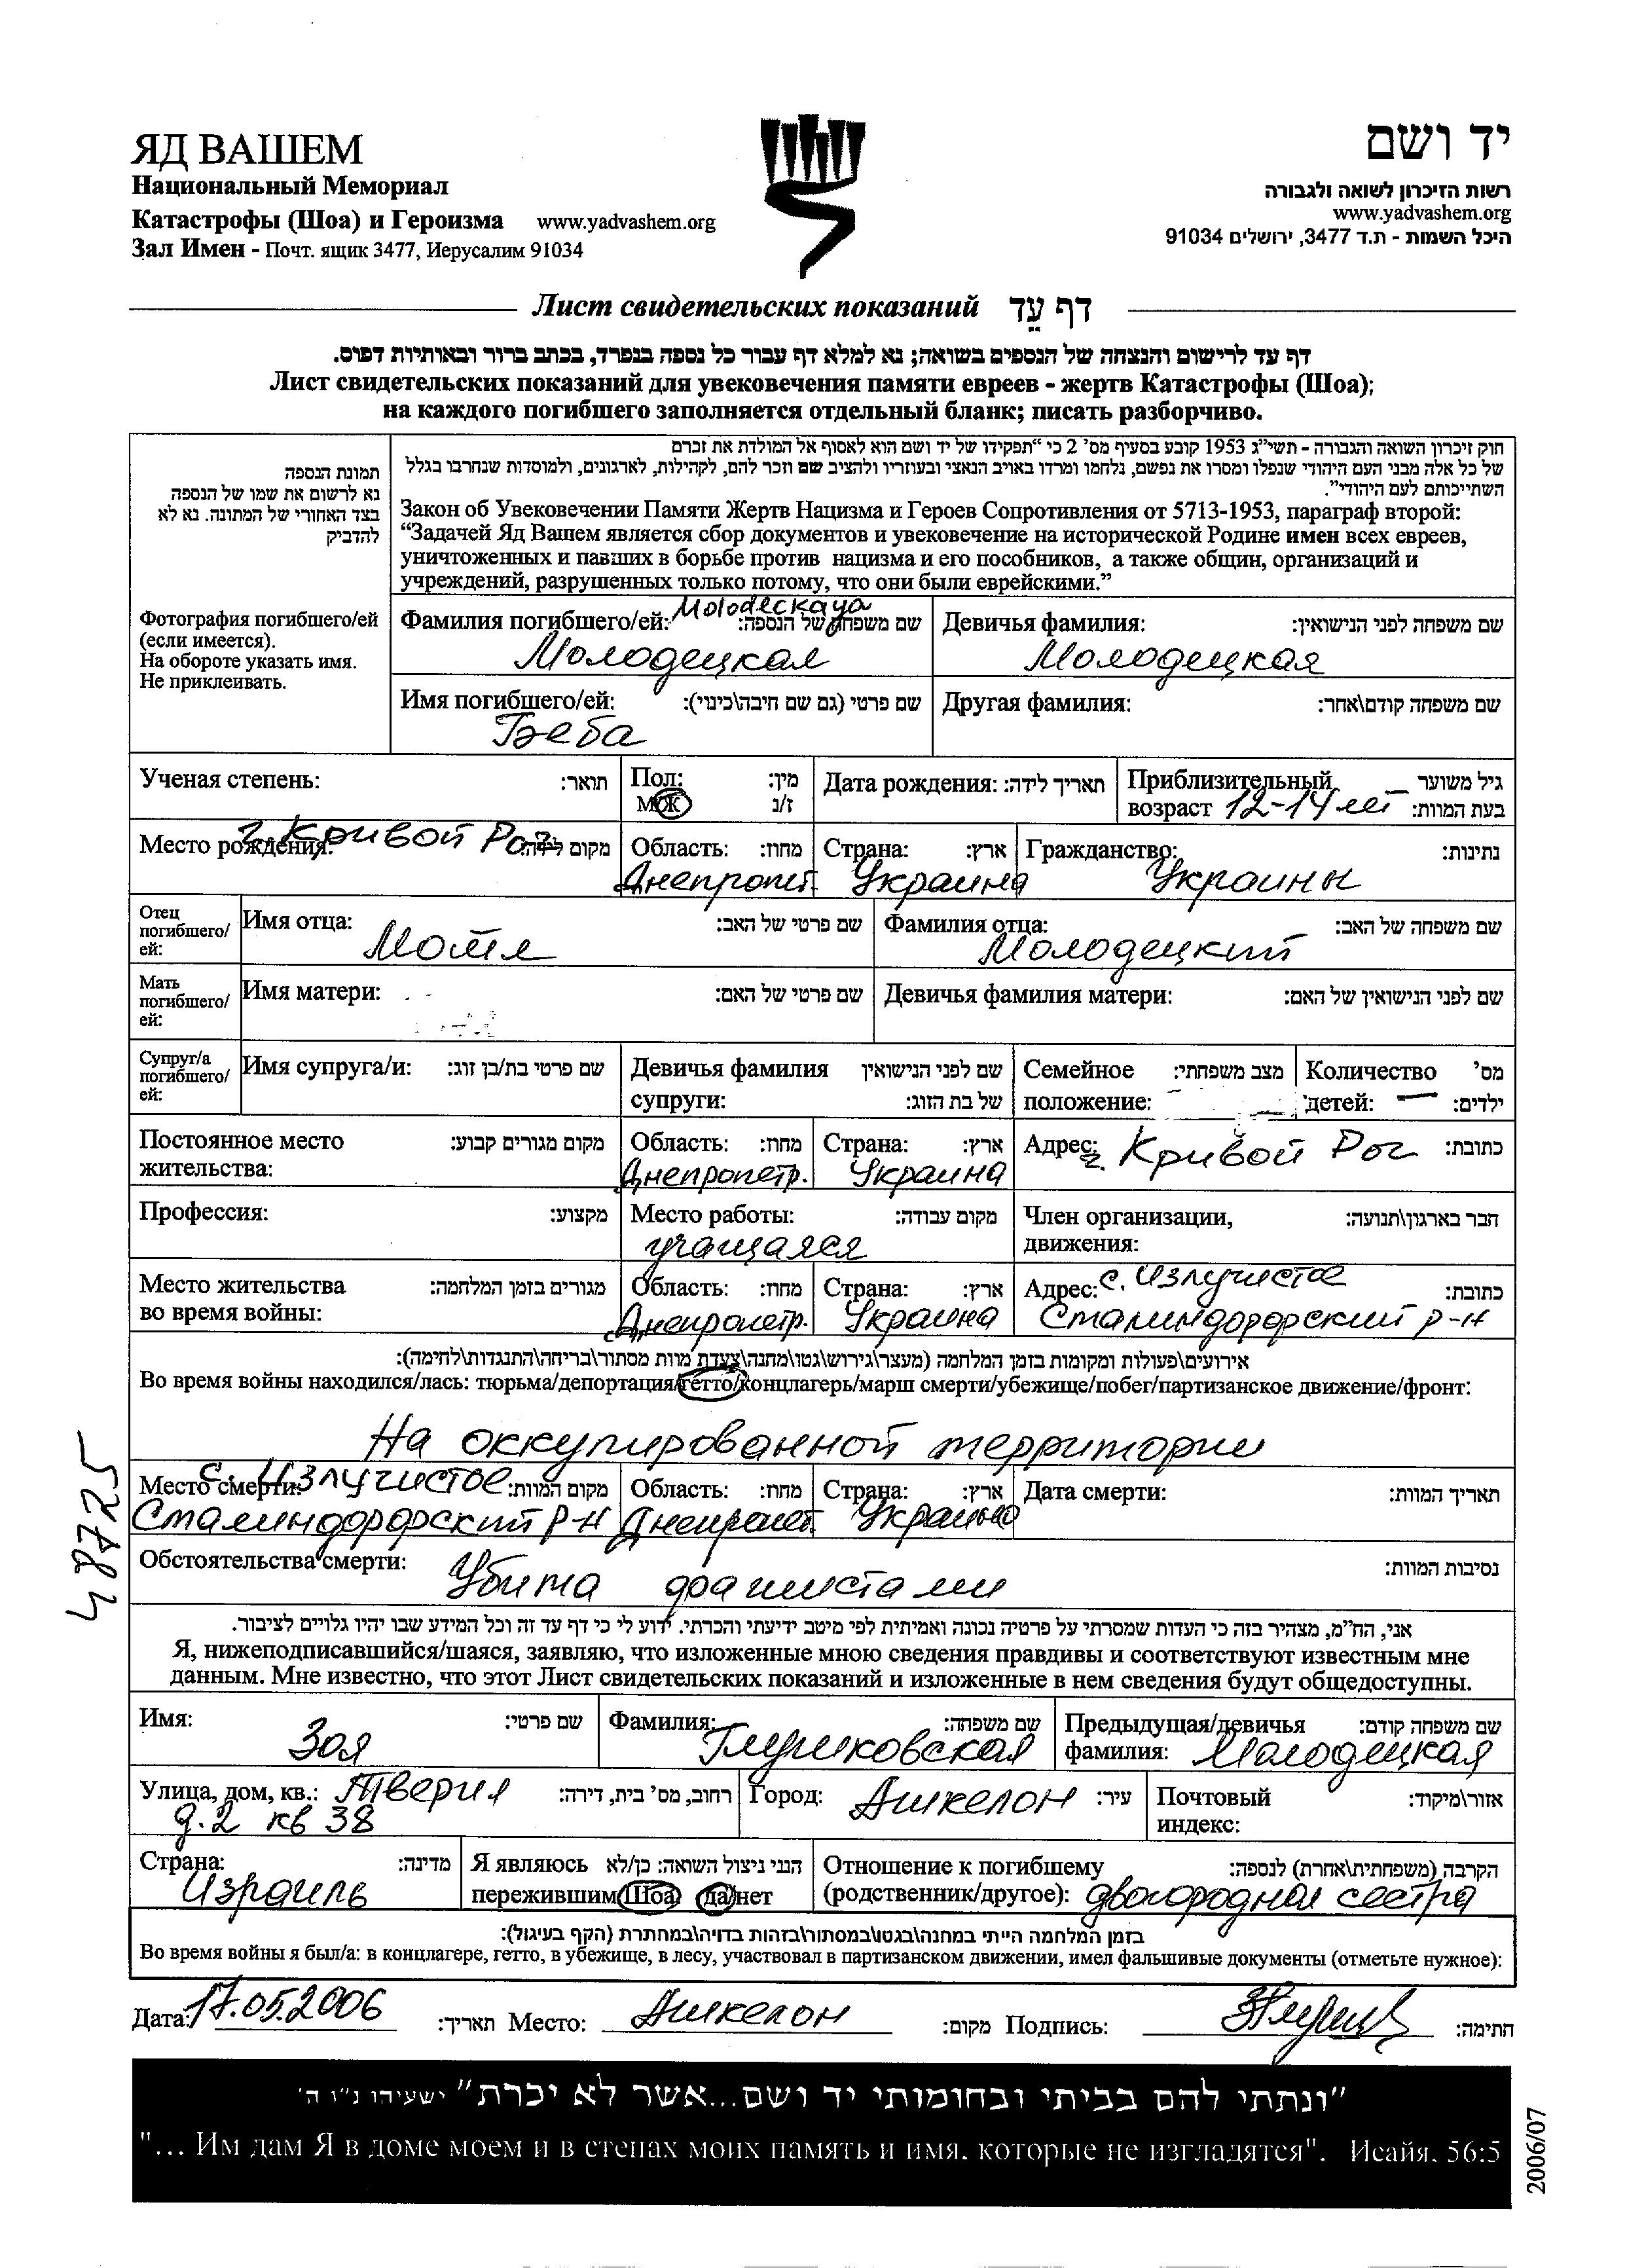 ЯД ВАШЕМ
Национальный Мемориал
Катастрофы (Шоа) и Героизма www.yadvashem.org
Зал Имен - Почт. ящик 3477, Иерусалим 91034
יד ושם
רשות הזיכרון לשואה ולגבורה
www.yadvashem.org
היכל השמות - ת.ד 3477, ירושלים 91034
Лист свидетельских показаний דף עֵד
דף עד לרישום והנצחה של הנספים בשואה; נא למלא דף עבור כל נספה בנפרד, בכתב ברור ובאותיות דפוס.
Лист свидетельских показаний для увековечения памяти евреев - жертв Катастрофы (Шоа);
на каждого погибшего заполняется отдельный бланк; писать разборчиво.
תמונת הנספה
נא לרשום את שמו של הנספה
בצד האחורי של התמונה. נא לא
להדביק
Фотография погибшего/ей
(если имеется).
На обороте указать имя.
Не приклеивать.
חוק זיכרון השואה והגבורה - תשי"ג 1953 קובע בסעיף מס' 2 כי "תפקידו של יד ושם הוא לאסוף אל המולדת את זכרם
של כל אלה מבני העם היהודי שנפלו ומסרו את נפשם, נלחמו ומרדו באויב הנאצי ובעוזריו ולהציב שם וזכר להם, לקהילות, לארגונים, ולמוסדות שנחרבו בגלל
השתייכותם לעם היהודי".
Закон об Увековечении Памяти Жертв Нацизма и Героев Сопротивления от 5713-1953, параграф второй:
“Задачей Яд Вашем является сбор документов и увековечение на исторической Родине имен всех евреев,
уничтоженных и павших в борьбе против нацизма и его пособников, а также общин, организаций и
учреждений, разрушенных только потому, что они были еврейскими.”
Molodeckaya
Фамилия погибшего/ей: שם משפחה של הנספה:
Молодецкая
Девичья фамилия: שם משפחה לפני הנישואין:
Молодецкая
Имя погибшего/ей: שם פרטי (גם שם חיבה\כינוי):
Беба
Другая фамилия: שם משפחה קודם\אחר:
Ученая степень: תואר:
Пол: מין:
М/Ж ז/נ
Дата рождения: תאריך לידה:
Приблизительный גיל משוער
возраст 12-14 лет בעת המוות:
Место рождения: г. Кривой Рог מקום לידה:
Область: מחוז:
Днепропет.
Страна: ארץ:
Украина
Гражданство: נתינות:
Украины
Отец
погибшего/
ей:
Имя отца: שם פרטי של האב:
Мотя
Фамилия отца: שם משפחה של האב:
Молодецкий
Мать
погибшего/
ей:
Имя матери: שם פרטי של האם:
Девичья фамилия матери: שם לפני הנישואין של האם:
Супруг/а
погибшего/
ей:
Имя супруга/и: שם פרטי בת/בן זוג:
Девичья фамилия שם לפני הנישואין
супруги: של בת הזוג:
Семейное מצב משפחתי:
положение:
Количество מס'
детей: — ילדים:
Постоянное место מקום מגורים קבוע:
жительства:
Область: מחוז:
Днепропетр.
Страна: ארץ:
Украина
Адрес: г. Кривой Рог כתובת:
Профессия: מקצוע:
Место работы: מקום עבודה:
учащаяся
Член организации, חבר בארגון\תנועה:
движения:
Место жительства מגורים בזמן המלחמה:
во время войны:
Область: מחוז:
Днепропетр.
Страна: ארץ:
Украина
Адрес: с. Излучистое כתובת:
Сталиндорфский р-н
אירועים\פעולות ומקומות בזמן המלחמה (מעצר\גירוש\גטו\מחנה\צעדת מוות מסתור\בריחה\התנגדות\לחימה):
Во время войны находился/лась: тюрьма/депортация/гетто/концлагерь/марш смерти/убежище/побег/партизанское движение/фронт:
На оккупированной территории
Место смерти: с. Излучистое מקום המוות:
Сталиндорфский р-н
Область: מחוז:
Днепропет.
Страна: ארץ:
Украина
Дата смерти: תאריך המוות:
Обстоятельства смерти: נסיבות המוות:
Убита фашистами
אני, הח"מ, מצהיר בזה כי העדות שמסרתי על פרטיה נכונה ואמיתית לפי מיטב ידיעתי והכרתי. ידוע לי כי דף עד זה וכל המידע שבו יהיו גלויים לציבור.
Я, нижеподписавшийся/шаяся, заявляю, что изложенные мною сведения правдивы и соответствуют известным мне
данным. Мне известно, что этот Лист свидетельских показаний и изложенные в нем сведения будут общедоступны.
Имя: שם פרטי:
Зоя
Фамилия: שם משפחה:
Глушковская
Предыдущая/девичья שם משפחה קודם:
фамилия: Молодецкая
Улица, дом, кв.: Тверия רחוב, מס' בית, דירה:
д.2 кв 38
Город: Ашкелон עיר:
Почтовый אזור\מיקוד:
индекс:
Страна: מדינה:
Израиль
Я являюсь הנני ניצול השואה: כן/לא
пережившим Шоа да/нет
Отношение к погибшему הקרבה (משפחתית\אחרת) לנספה:
(родственник/другое): двоюродная сестра
בזמן המלחמה הייתי במחנה\בגטו\במסתור\בזהות בדויה\במחתרת (הקף בעיגול):
Во время войны я был/а: в концлагере, гетто, в убежище, в лесу, участвовал в партизанском движении, имел фальшивые документы (отметьте нужное):
Дата: 17.05.2006 תאריך: Место: Ашкелон מקום: Подпись: חתימה:
"ונתתי להם בביתי ובחומותי יד ושם...אשר לא יכרת" ישעיהו נ"ו ה'
"... Им дам Я в доме моем и в стенах моих память и имя, которые не изгладятся". Исайя, 56:5
48725
2006/07